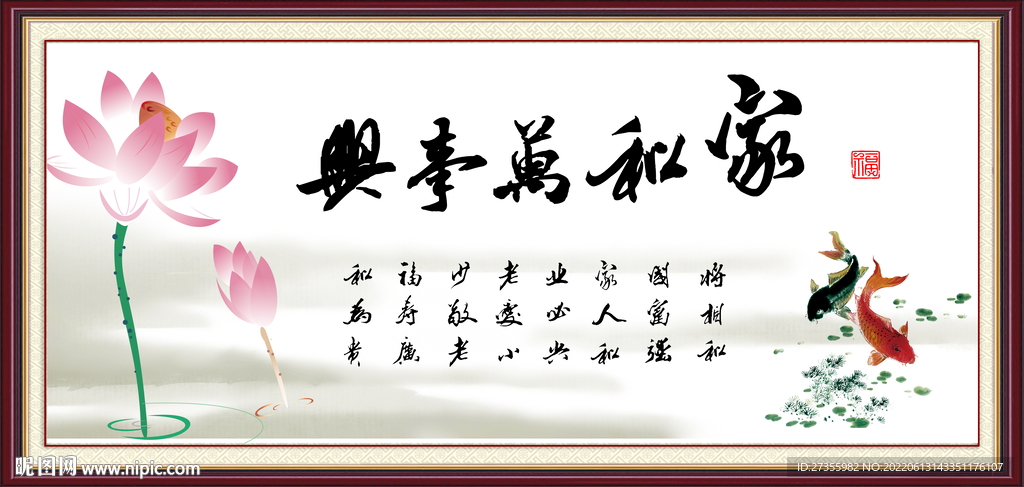 家和萬事興
福
將相和
國富强
家人和
业必兴
老愛小
少敬老
福寿廣
和为贵
昵图网 www.nipic.com
ID:27355982 NO:20220613143351176107